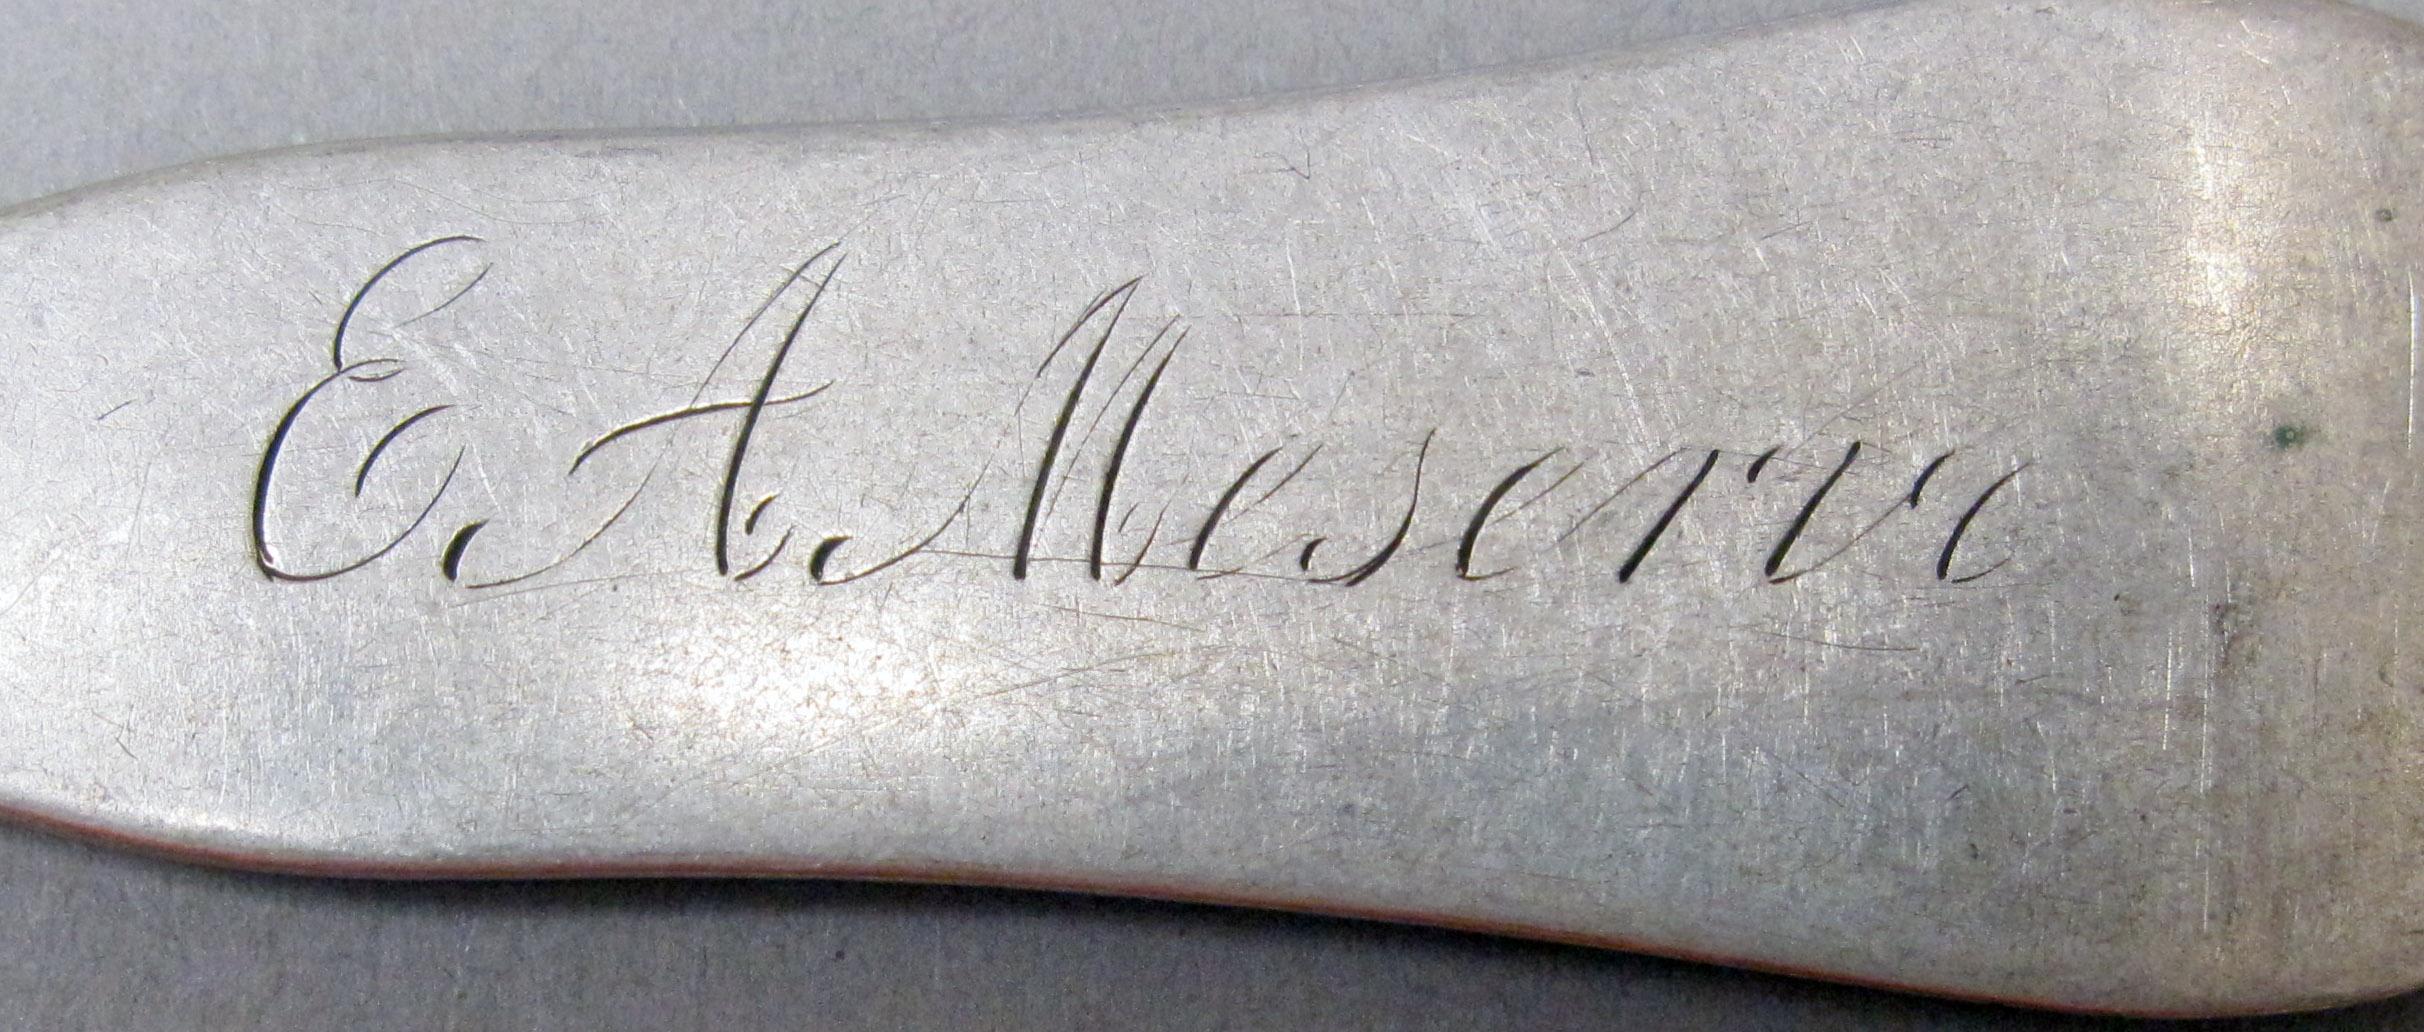 E A Meserve